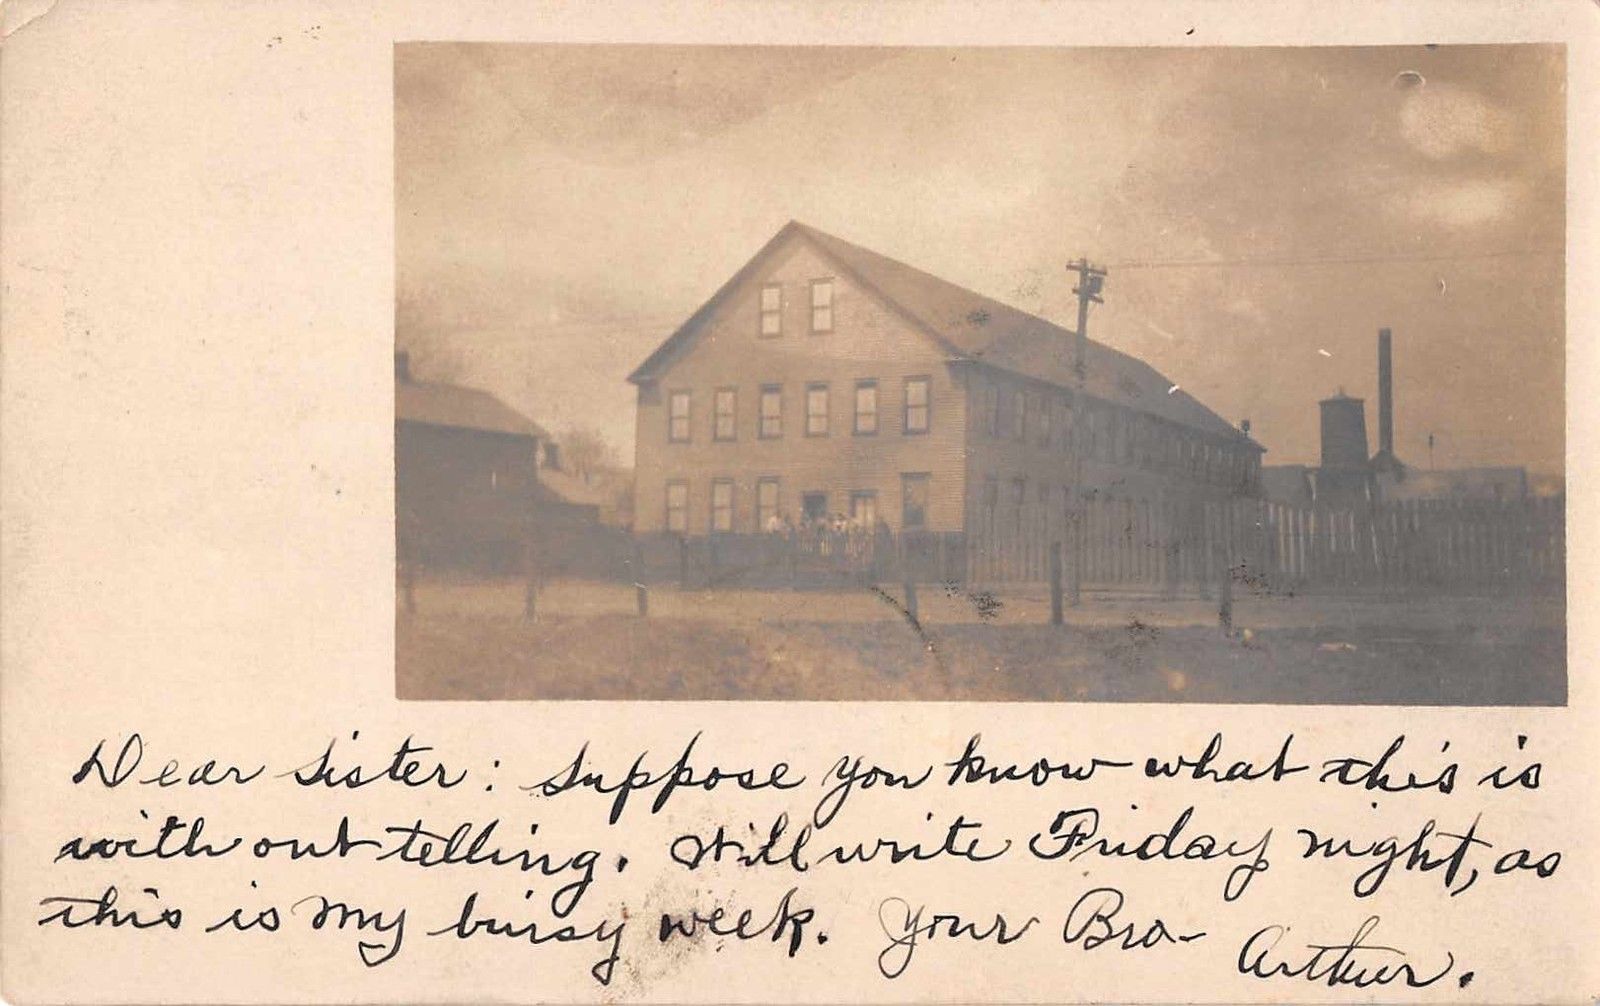 Dear Sister: Suppose you know what this is
with out telling. Will write Friday night, as
this is my buisy week. Your Bro-
Arthur.